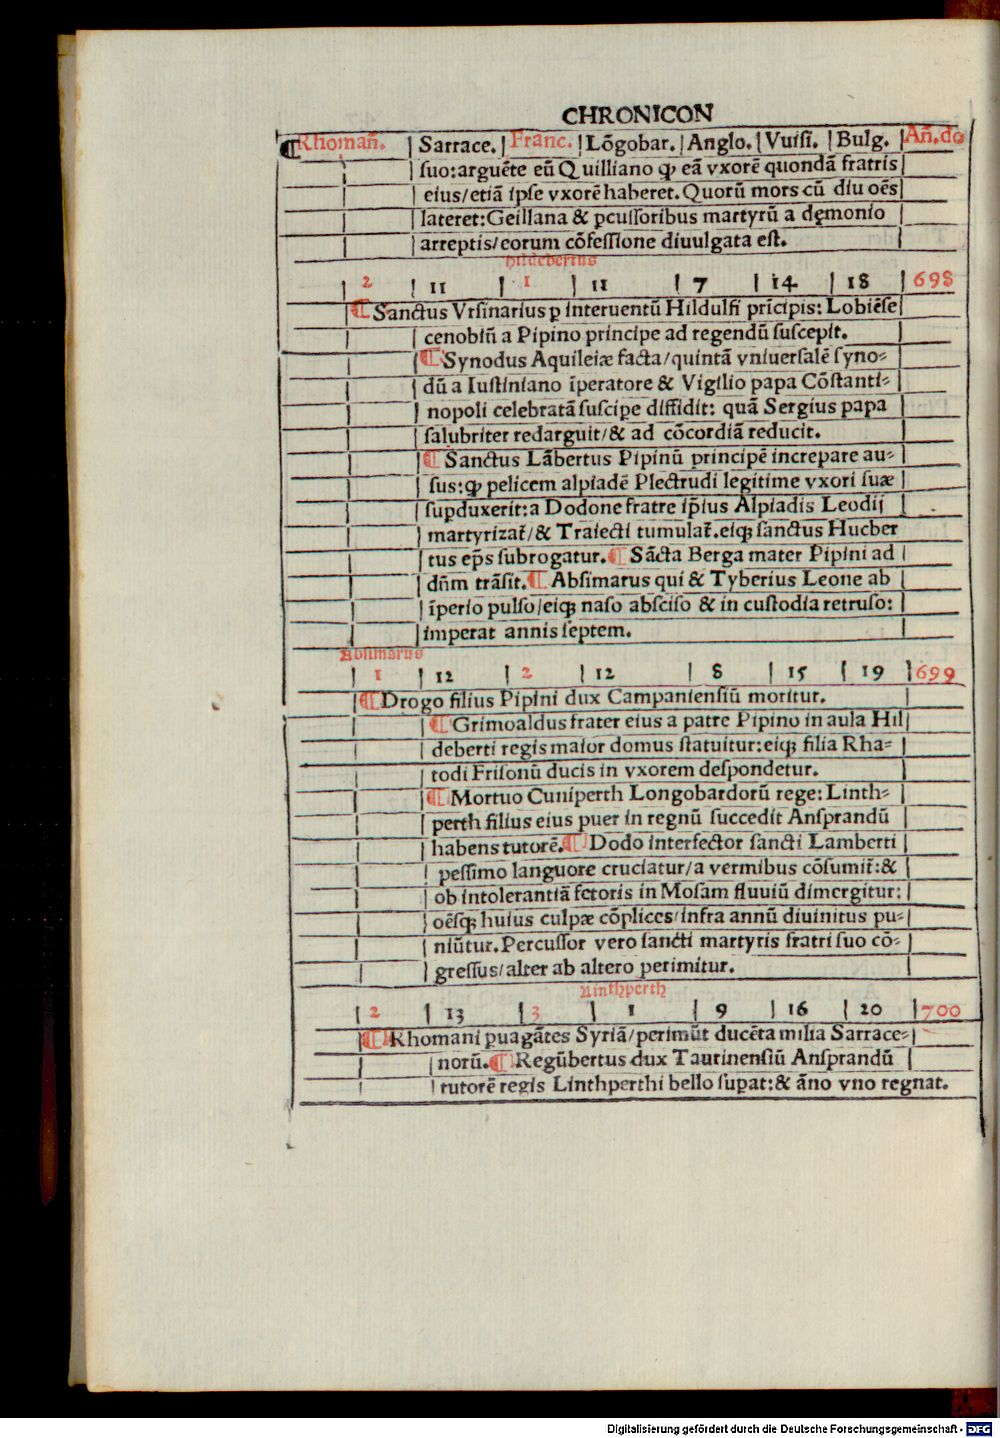 CHRONICON
¶Rhomañ. Sarrace. Franc. Lõgobar. Anglo. Vuisi. Bulg. Añ.do
suo:arguẽte eũ Quilliano ꝙ eã vxorẽ quondã fratris
eius/etiã ipse vxorẽ haberet. Quorũ mors cũ diu oẽs
lateret:Geillana & ꝑcussoribus martyrũ a dęmonio
arreptis/eorum cõfessione diuulgata est.
Hildebertus
2 11 1 11 7 14 18 698
¶Sanctus Vrsinarius ꝑ interuentũ Hildulfi prĩcipis: Lobiẽse
cenobiũ a Pipino principe ad regendũ suscepit.
¶Synodus Aquileiæ facta/quintã vniuersalẽ syno-
dũ a Iustiniano ĩperatore & Vigilio papa Cõstanti-
nopoli celebratã suscipe diffidit: quã Sergius papa
salubriter redarguit/& ad cõcordiã reducit.
¶Sanctus Lãbertus Pipinũ principẽ increpare au-
sus:ꝙ pelicem alpiadẽ Plectrudi legitime vxori suæ
supduxerit:a Dodone fratre ip̃ius Alpiadis Leodij
martyrizat̃/& Traiecti tumulat̃.eiqꝫ sanctus Hucber
tus ep̃s subrogatur. ¶ Sãcta Berga mater Pipini ad
dñm trãsit. ¶ Absimarus qui & Tyberius Leone ab
ĩperio pulso/eiqꝫ naso absciso & in custodia retruso:
imperat annis septem.
Absimarus
1 12 2 12 8 15 19 699
¶Drogo filius Pipini dux Campaniensiũ moritur.
¶Grimoaldus frater eius a patre Pipino in aula Hil
deberti regis maior domus statuitur:eiqꝫ filia Rha-
todi Frisonũ ducis in vxorem despondetur.
¶Mortuo Cuniperth Longobardorũ rege: Linth-
perth filius eius puer in regnũ succedit Ansprandũ
habens tutorẽ. ¶ Dodo interfector sancti Lamberti
pessimo languore cruciatur/a vermibus cõsumit̃:&
ob intolerantiã fetoris in Mosam fluuiũ dimergitur:
oẽsqꝫ huius culpæ cõplices/infra annũ diuinitus pu-
niũtur. Percussor vero sancti martyris fratri suo cõ-
gressus/alter ab altero perimitur.
Linthperth
2 13 3 1 9 16 20 700
¶Rhomani ꝑuagãtes Syriã/perimũt ducẽta milia Sarrace-
norũ. ¶Regũbertus dux Taurinensiũ Ansprandũ
tutorẽ regis Linthperthi bello supat:& ãno vno regnat.
Digitalisierung gefördert durch die Deutsche Forschungsgemeinschaft - DFG